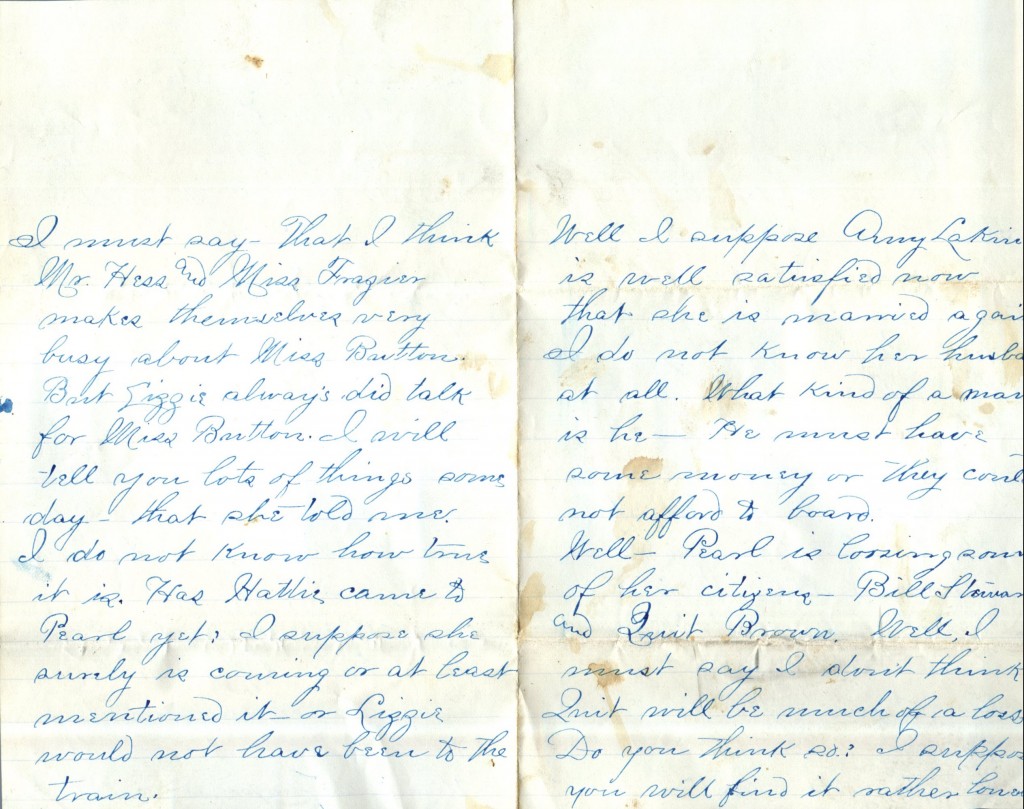 I must say - That I think
Mr. Hess and Miss Frazier
makes themselves very
busy about Miss Button.
But Lizzie always did talk
for Miss Button. I will
tell you lots of things some
day - that she told me.
I do not know how true
it is. Has Hattie came to
Pearl yet? I suppose she
surely is coming or at least
mentioned it - or Lizzie
would not have been to the
train.
Well I suppose Amy Lakin
is well satisfied now
that she is married agai
I do not know her husba
at all. What kind of a man
is he - He must have
some money or they coul
not afford to board.
Well - Pearl is loosing som
of her citizens - Bill Stewar
and Quit Brown. Well, I
must say I don't think
Quit will be much of a loss
Do you think so? I suppos
you will find it rather lone